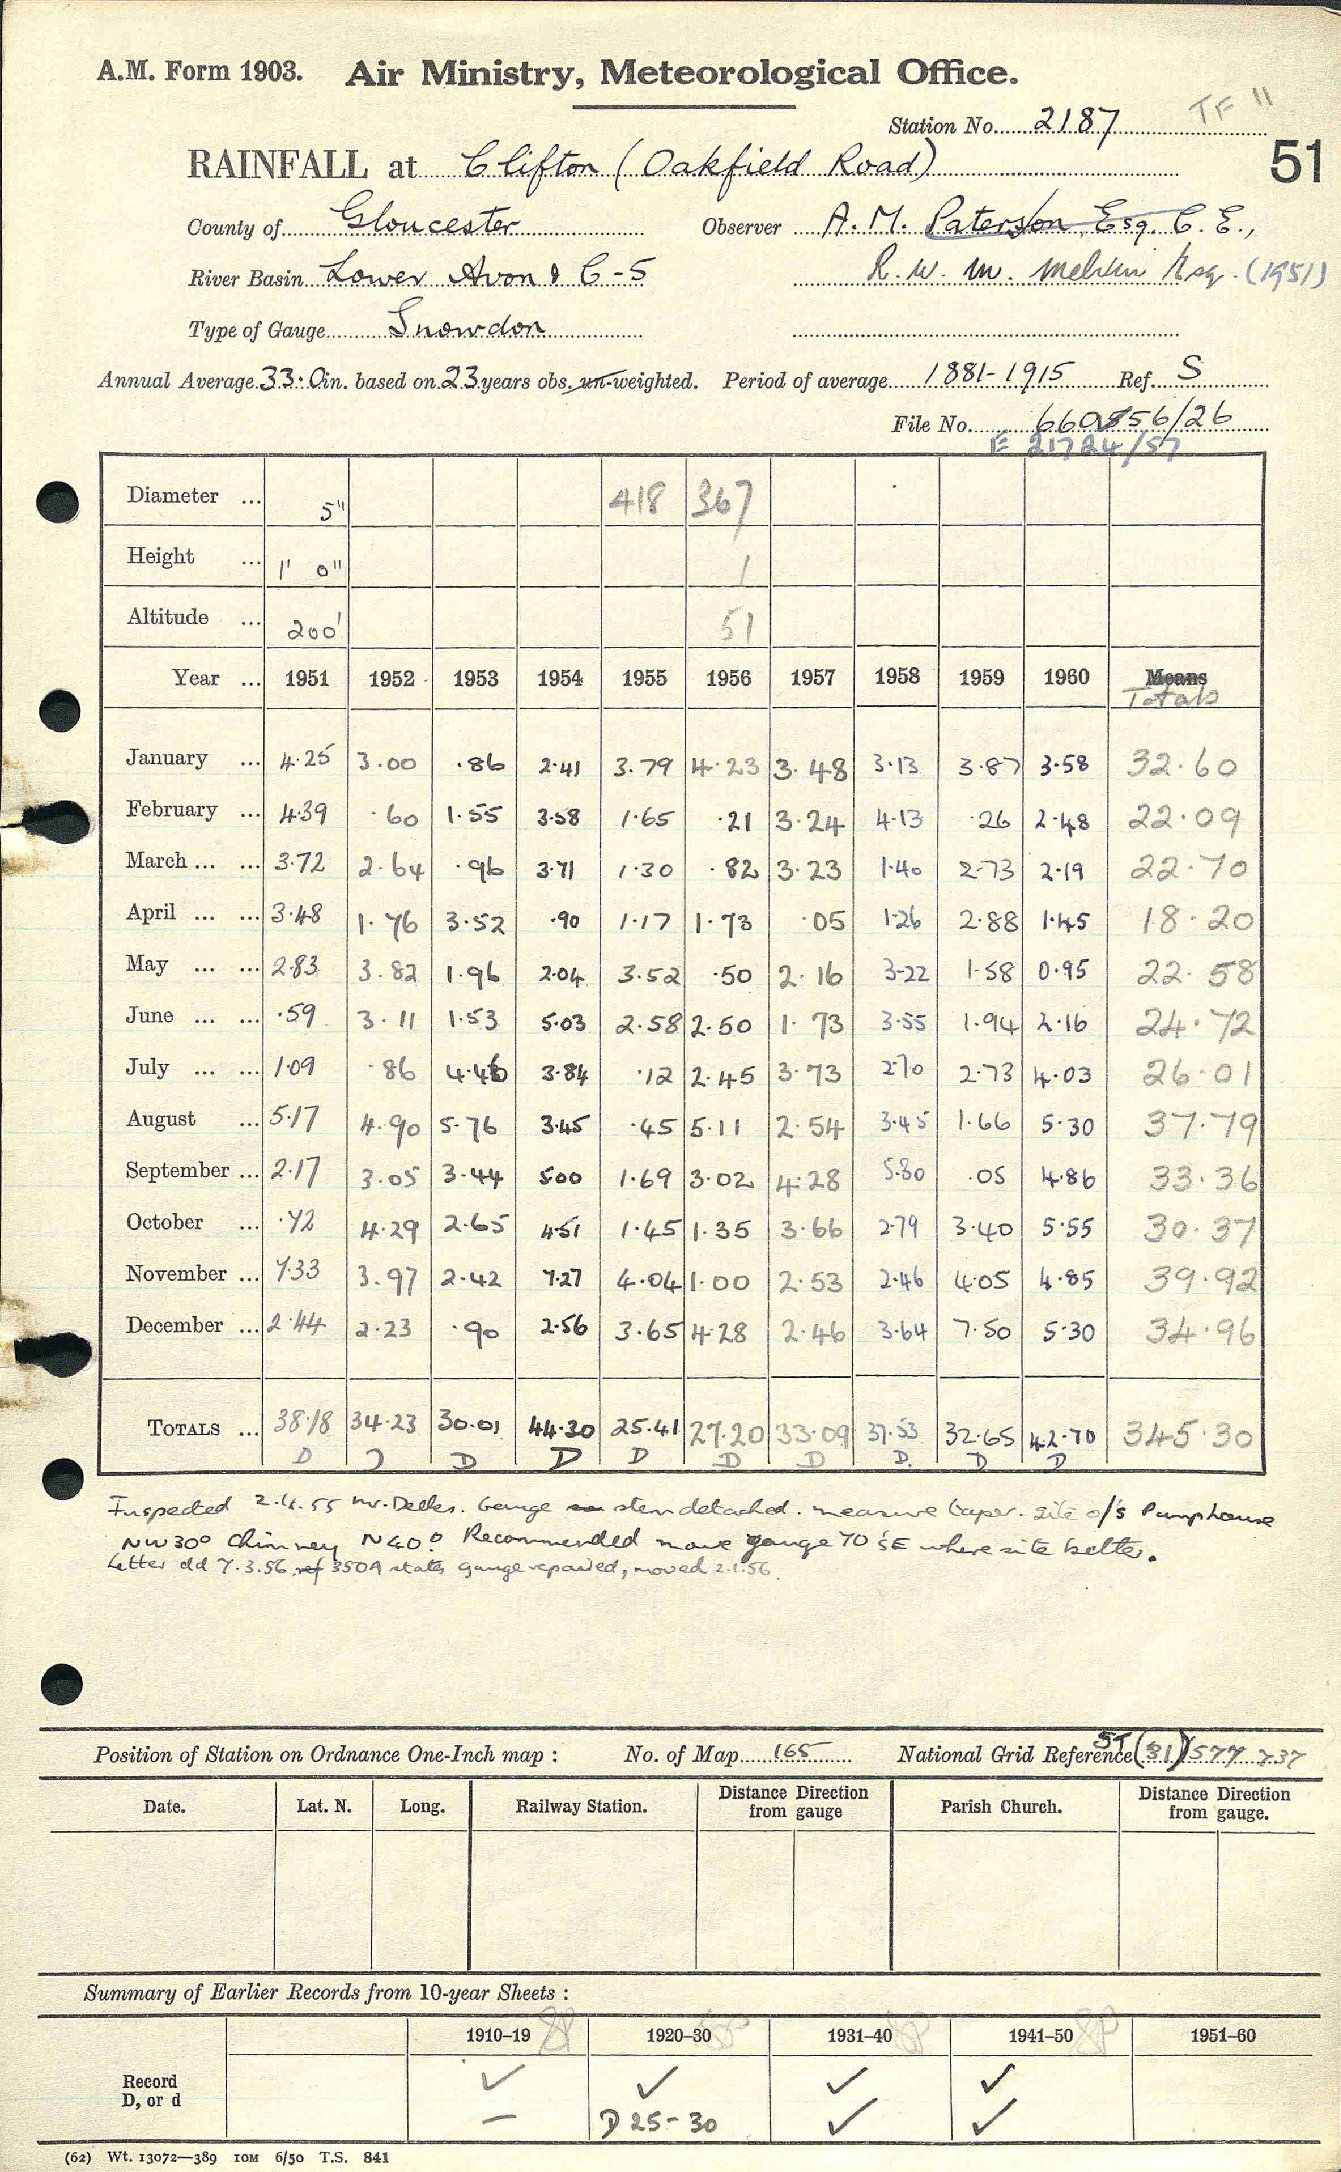 A.M. Form 1903. Air Ministry, Meteorological Office.
TF "
Station No. 2187
51
RAINFALL at Clifton (Oakfield Road)
County of Gloucester Observer A. M. Paterson, Esq. C. E.,
River Basin Lower Avon & C-S R. W. M. Melvin Esq. (1951)
Type of Gauge Snowdon
Annual Average 33.0 in. based on 23 years obs. un-weighted. Period of average 1881-1915 Ref. S
File No. 660856/26
E 21724/57
Diameter ... 5" 418 367
Height ... 1' 0" 1
Altitude ... 200' 51
Year ... 1951 1952 1953 1954 1955 1956 1957 1958 1959 1960 Means
Totals
January ... 4.25 3.00 .86 2.41 3.79 4.23 3.48 3.13 3.87 3.58 32.60
February ... 4.39 .60 1.55 3.58 1.65 .21 3.24 4.13 .26 2.48 22.09
March ... ... 3.72 2.64 .96 3.71 1.30 .82 3.23 1.40 2.73 2.19 22.70
April ... ... 3.48 1.76 3.52 .90 1.17 1.73 .05 1.26 2.88 1.45 18.20
May ... ... 2.83 3.82 1.96 2.04 3.52 .50 2.16 3.22 1.58 0.95 22.58
June ... ... .59 3.11 1.53 5.03 2.58 2.50 1.73 3.55 1.94 2.16 24.72
July ... ... 1.09 .86 4.46 3.84 .12 2.45 3.73 2.70 2.73 4.03 26.01
August ... 5.17 4.90 5.76 3.45 .45 5.11 2.54 3.45 1.66 5.30 37.79
September ... 2.17 3.05 3.44 5.00 1.69 3.02 4.28 5.80 .05 4.86 33.36
October ... .72 4.29 2.65 4.51 1.45 1.35 3.66 2.79 3.40 5.55 30.37
November ... 7.33 3.97 2.42 7.27 4.04 1.00 2.53 2.46 4.05 4.85 39.92
December ... 2.44 2.23 .90 2.56 3.65 4.28 2.46 3.64 7.50 5.30 34.96
TOTALS ... 38.18 34.23 30.01 44.30 25.41 27.20 33.09 37.53 32.65 42.70 345.30
D D D D D D D D. D D
Inspected 2.4.55 Mr. Delles. Gauge stem detached. measure taper. Site o/s Pumphouse
NW 30° Chimney N 40°. Recommended move gauge 70' SE where site better.
Letter dd 7.3.56 ref 350A states gauge repaired, moved 2.1.56.
Position of Station on Ordnance One-Inch map : No. of Map 165 National Grid Reference ST (31) 577 737
Date. Lat. N. Long. Railway Station. Distance Direction from gauge Parish Church. Distance Direction from gauge.
Summary of Earlier Records from 10-year Sheets :
1910-19 1920-30 1931-40 1941-50 1951-60
Record ✓ ✓ ✓ ✓
D, or d — D 25-30 ✓ ✓
(62) Wt. 13072—389 10M 6/50 T.S. 841